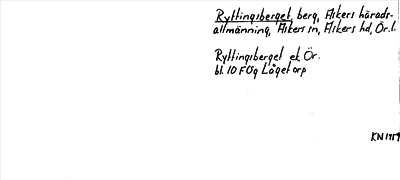 Ryttingsberget, berg, Askers härads-
allmänning, Askers sn, Askers hd, Ör.l.
Ryttingsberget ek Ör.
bl. 10 FÖg Lågetorp
KN 1959